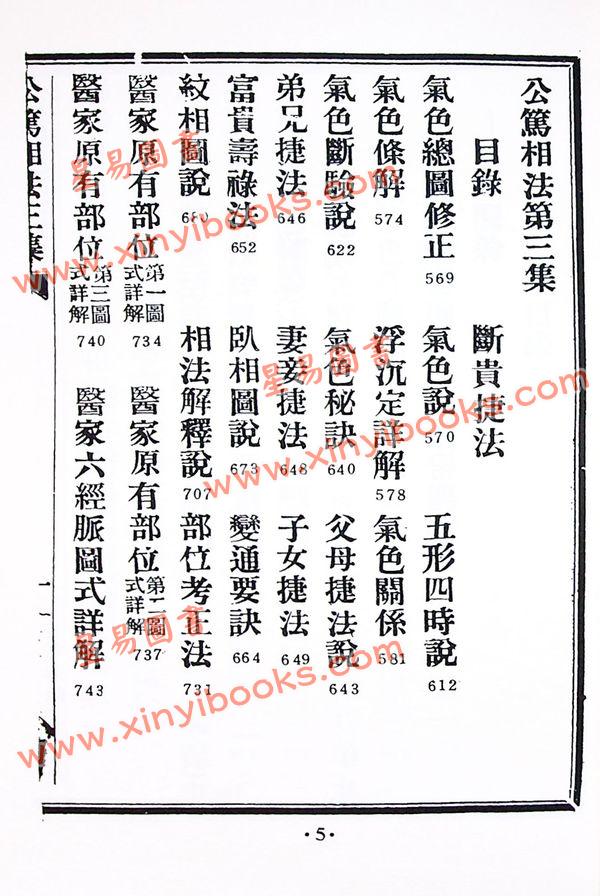 公篤相法第三集
目錄 斷貴捷法
氣色總圖修正 569 氣色說 570 五形四時說 612
氣色條解 574 浮沉定詳解 578 氣色關係 581
氣色斷驗說 622 氣色秘訣 640 父母捷法說 643
弟兄捷法 646 妻妾捷法 648 子女捷法 649
富貴壽祿法 652 臥相圖說 673 變通要訣 664
紋相圖說 680 相法解釋說 707 部位考正法 731
醫家原有部位第一圖式詳解 734 醫家原有部位第二圖式詳解 737
醫家原有部位第三圖式詳解 740 醫家六經脈圖式詳解 743
公篤相法三集
·5·
星易圖書
www.xinyibooks.com
星易圖書
www.xinyibooks.com
星易圖書
www.xinyibooks.com